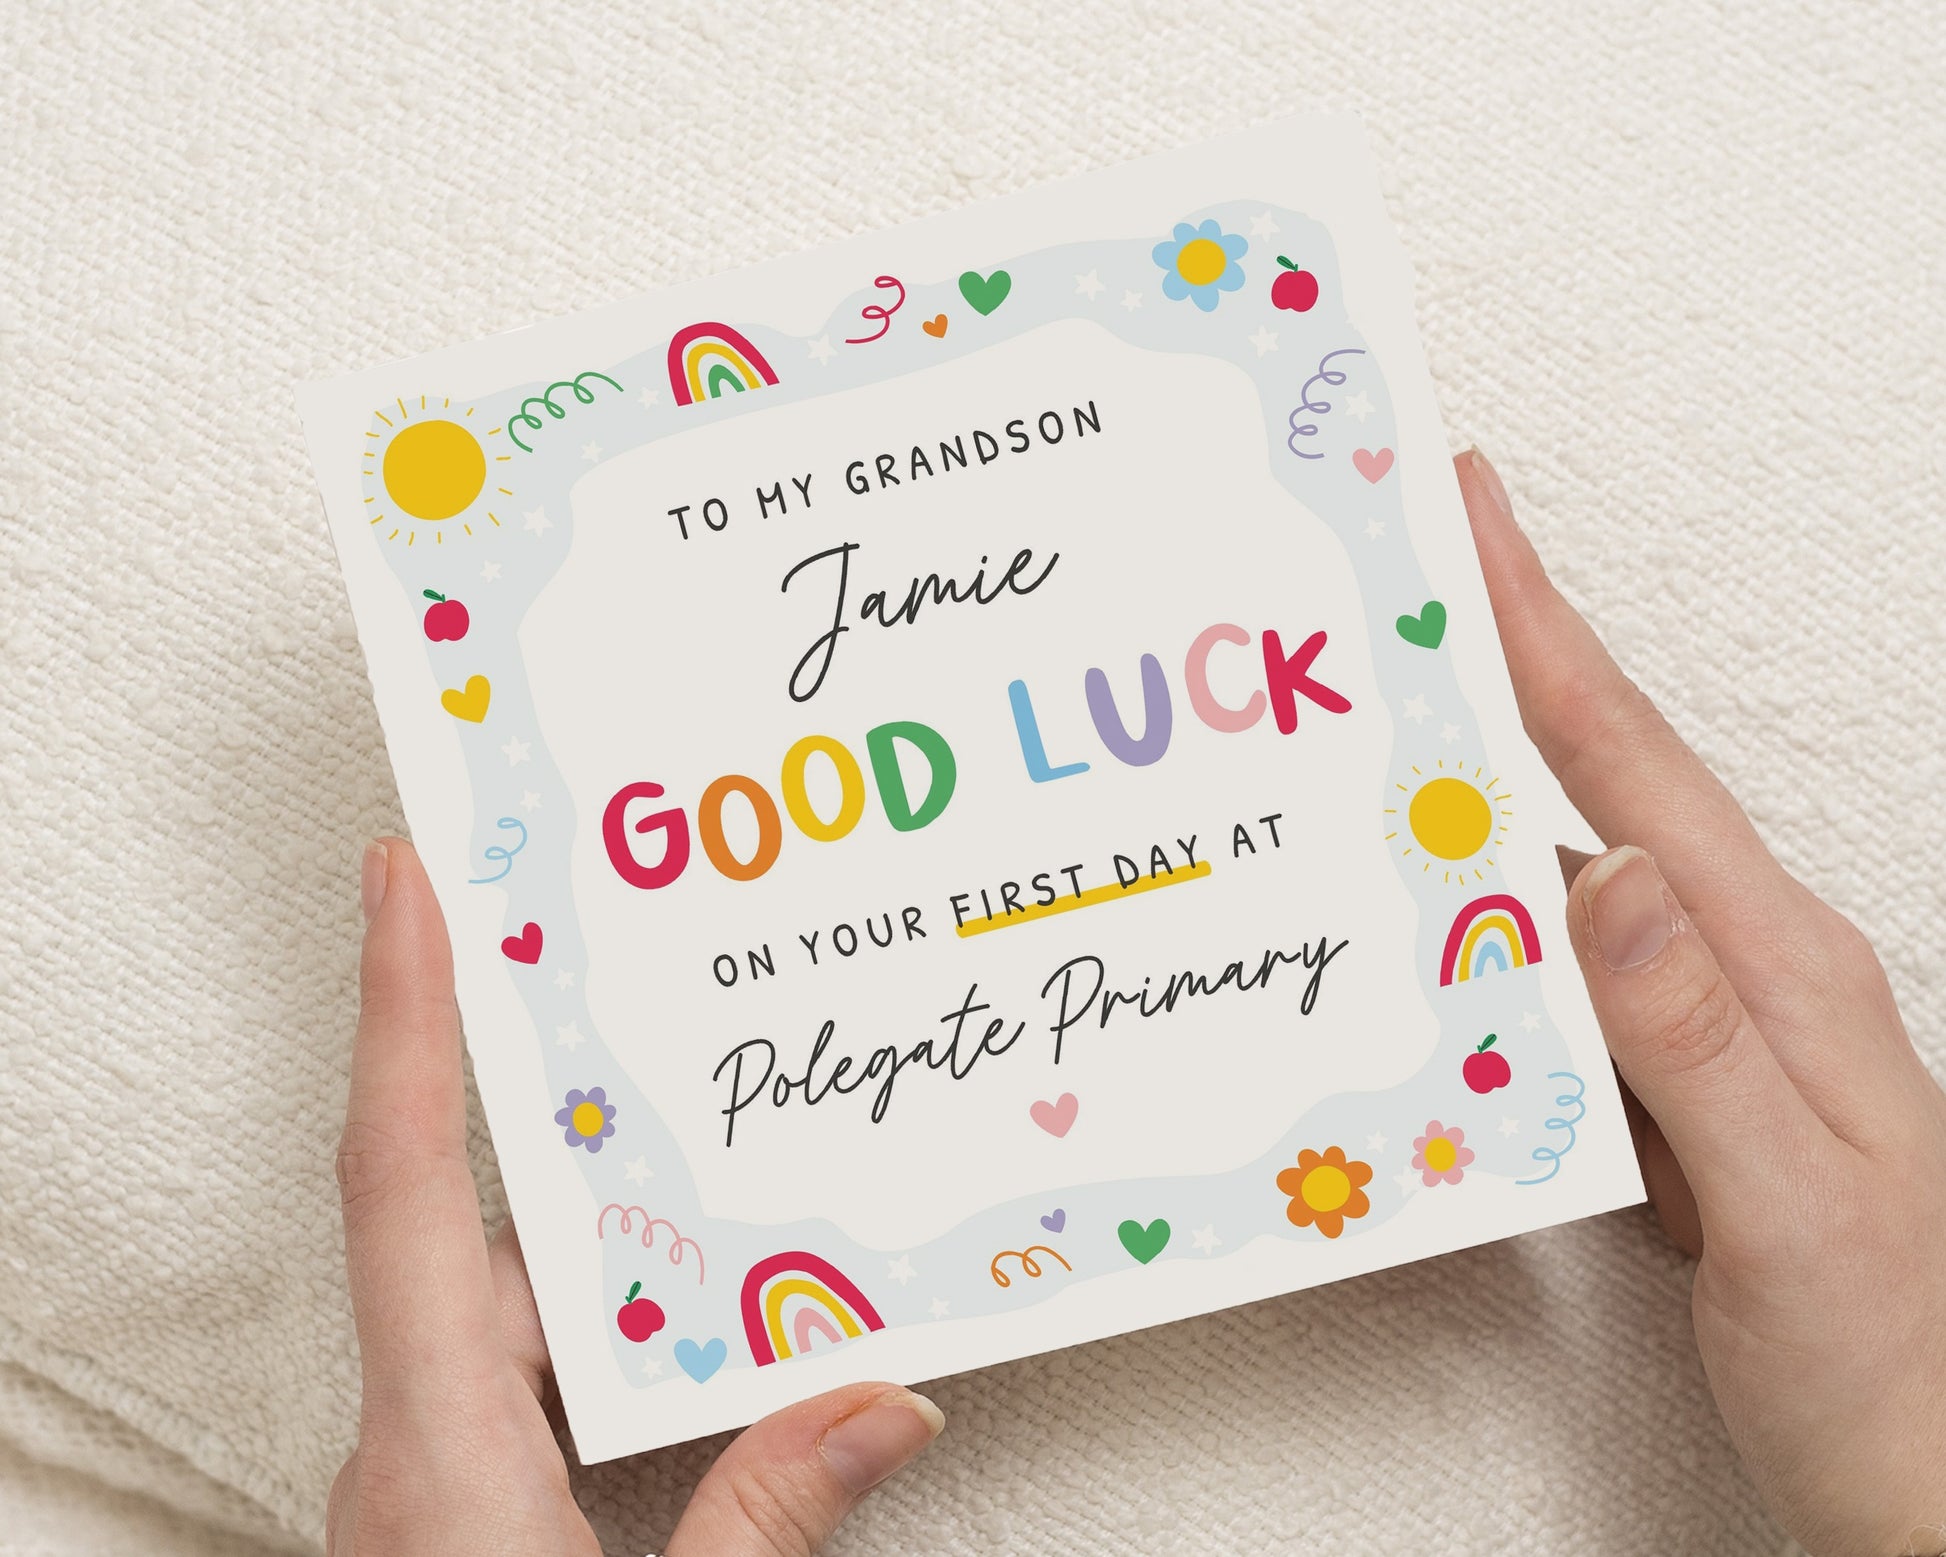 TO MY GRANDSON
Jamie
GOOD LUCK
ON YOUR FIRST DAY AT
Polegate Primary